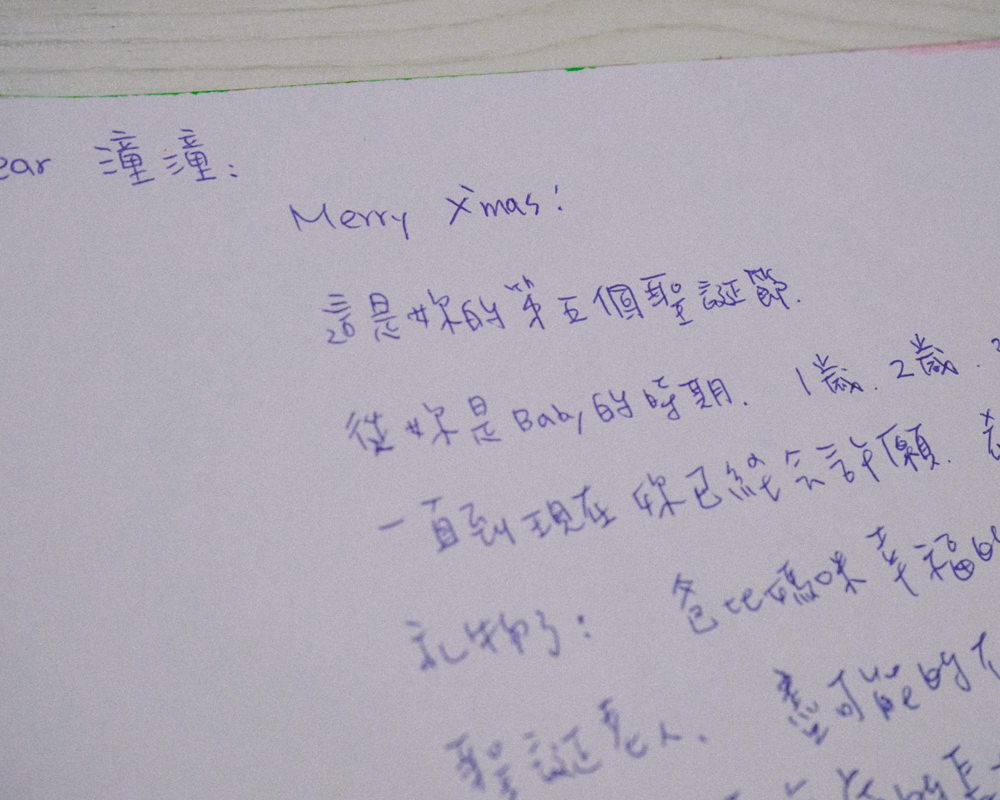 ear 潼潼:
Merry X'mas!
這是妳的第五個聖誕節.
從妳是Baby的時期. 1歲. 2歲.
一直到現在妳已經会許願.
礼物了: 爸比媽咪幸福的
聖誕老人. 盡可能的